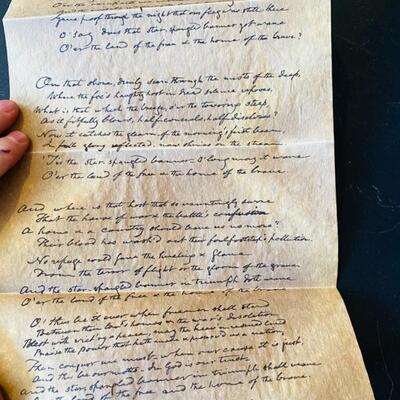 Gave proof through the night that our flag was still there
O! say does that star spangled banner yet wave
O'er the land of the free & the home of the brave?
On that shore, dimly seen through the mists of the deep,
Where the foe's haughty host in dread silence reposes,
What is that which the breeze, o'er the towering steep,
As it fitfully blows, half conceals, half discloses?
Now it catches the gleam of the morning's first beam,
In full glory reflected now shines in the stream,
'Tis the star-spangled banner - O long may it wave
O'er the land of the free & the home of the brave.
And where is that host that so vauntingly swore
That the havoc of war & the battle's confusion
A home & a country should leave us no more?
Their blood has wash'd out their foul footstep's pollution.
No refuge could save the hireling & slave
From the terror of flight or the gloom of the grave.
And the star-spangled banner in triumph doth wave
O'er the land of the free & the home of the brave.
O! thus be it ever when freemen shall stand
Between their lov'd homes & the war's desolation
Blest with vict'ry & peace may the heav'n rescued land
Praise the power that hath made & preserv'd us a nation.
Then conquer we must, when our cause it is just,
And this be our motto - In God is our trust,
And the star-spangled banner in triumph shall wave
O'er the land of the free and the home of the brave.